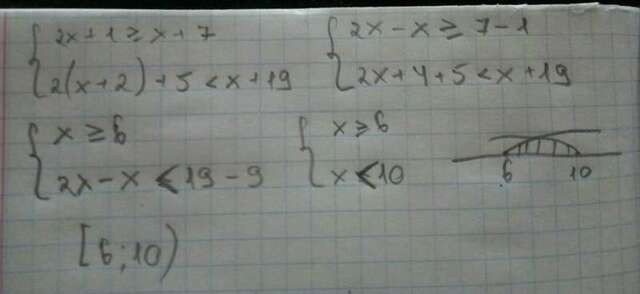 { 2x+1 ≥ x+7
{ 2(x+2)+5 < x+19
{ 2x-x ≥ 7-1
{ 2x+4+5 < x+19
{ x ≥ 6
{ 2x-x < 19-9
{ x ≥ 6
{ x < 10
6 10
[6; 10)